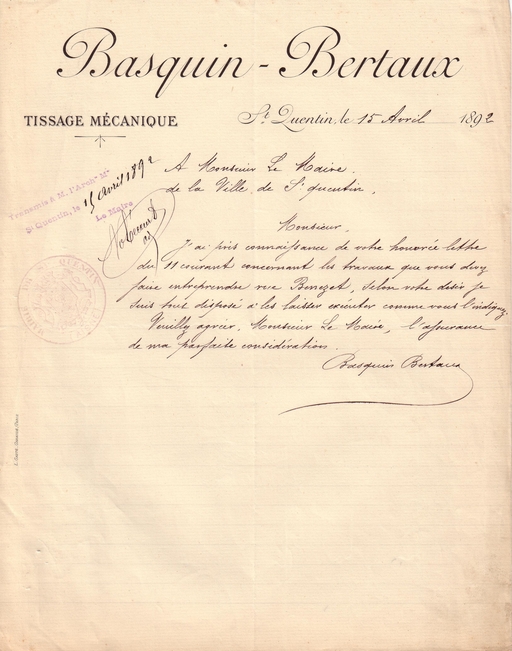 Basquin - Bertaux
TISSAGE MÉCANIQUE
St Quentin, le 15 Avril 1892
A Monsieur Le Maire
de la Ville de St quentin,
Transmis à M. l'Archte Mal
St Quentin, le 15 avril 1892
Le Maire
Monsieur
J'ai pris connaissance de votre honorée lettre
du 11 courant concernant les travaux que vous devez
faire entreprendre rue Benezet, Selon votre désir je
suis tout disposé à les laisser exécuter comme vous l'indiquez.
Veuillez agréer, Monsieur Le Maire, l'assurance
de ma parfaite considération.
Basquin Bertaux
QUENTIN